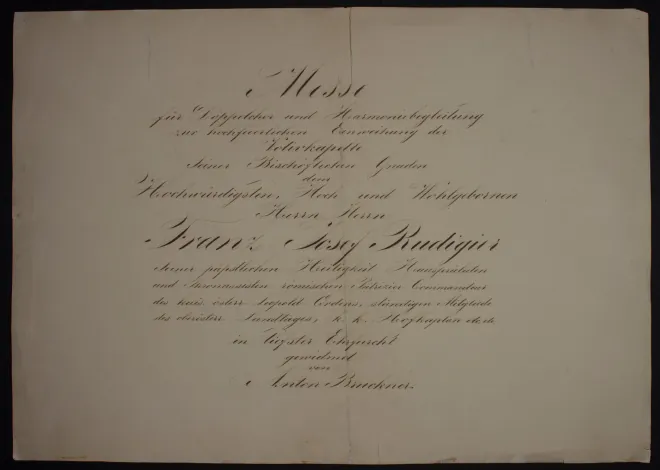 Messe
für Doppelchor und Harmoniebegleitung
zur hochfeierlichen Einweihung der
Votivkapelle
Seiner Bischöflichen Gnaden
dem
Hochwürdigsten, Hoch und Wohlgebornen
Herrn Herrn
Franz Josef Rudigier
Seiner päpstlichen Heiligkeit Hausprälaten
und Thronassisten römischen Patrizier Commandeur
des kais. österr. Leopold Ordens, ständigen Mitgliede
des oberösterr. Landtages, k. k. Hofkaplan etc. etc.
in tiefster Ehrfurcht
gewidmet
von
Anton Bruckner.